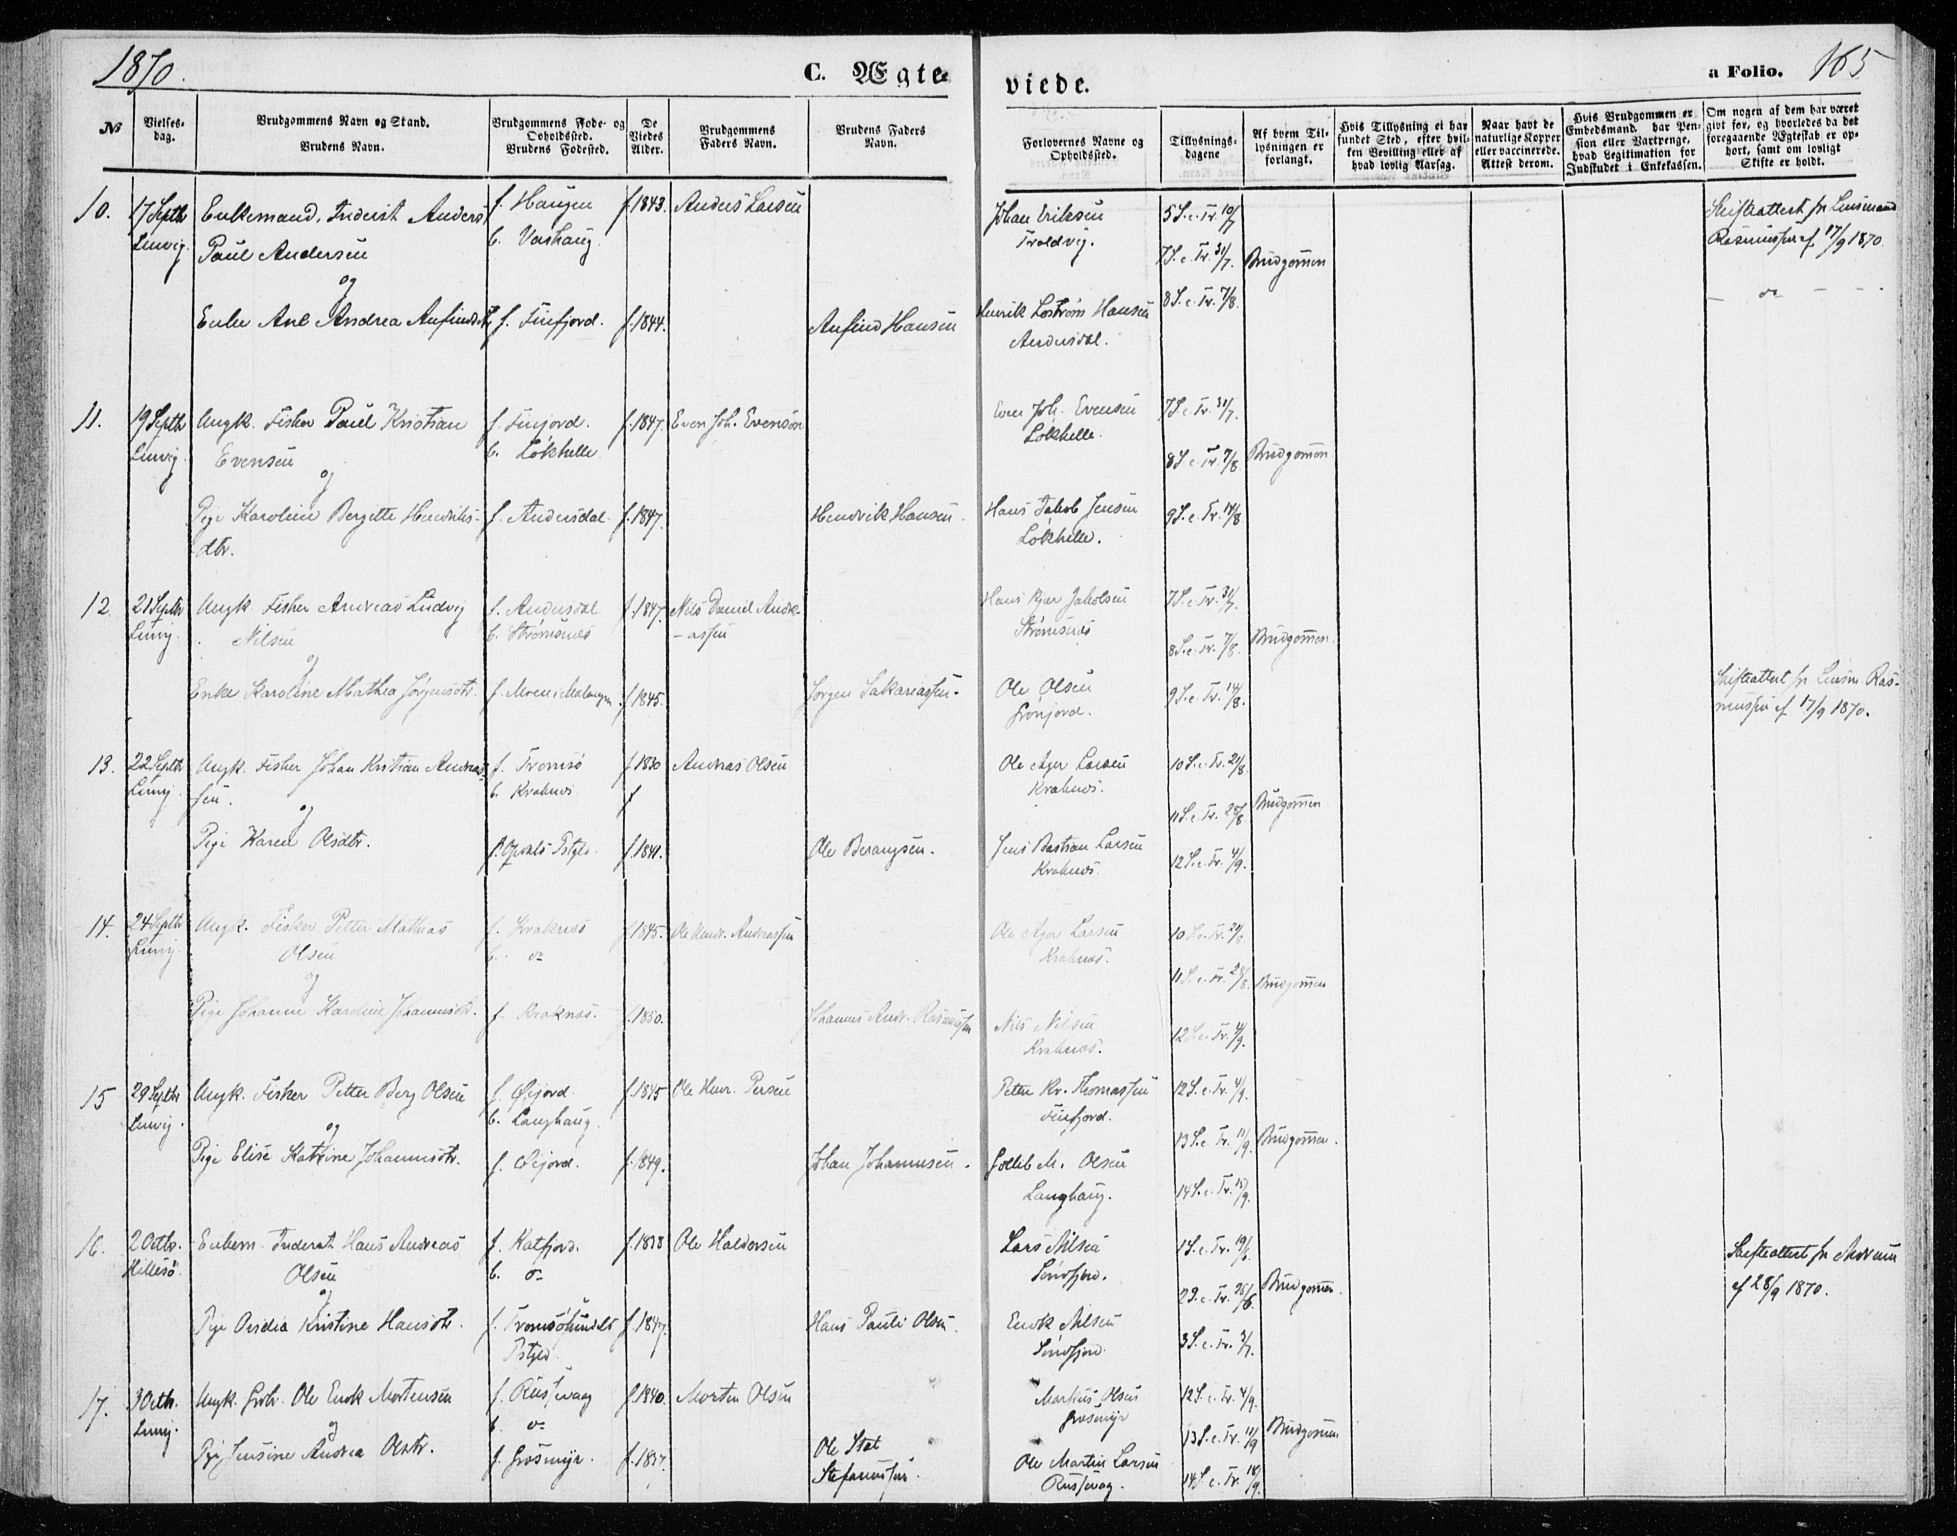 1870.
C. Ægte
viede.
a Folio. 165
№
Vielses-dag.
Brudgommens Navn og Stand.
Brudens Navn.
Brudgommens Føde- og Opholdssted.
Brudens Fødested.
De Viedes Alder.
Brudgommens Faders Navn.
Brudens Faders Navn.
Forlovernes Navne og Opholdssted.
Tillysnings-dagene
Af hvem Til-lysningen er forlangt.
Hvis Tillysning ei har fundet Sted, efter hvil-ken Bevilling eller af hvad lovlig Aarsag.
Naar havt de naturlige Kopper eller vaccinerede. Attest derom.
Hvis Brudgommen er Embedsmand, har Pen-sion eller Vartpenge, hvad Legitimation for Indskudet i Enkekassen.
Om nogen af dem har været givt før, og hvorledes da det foregaaende Ægteskab er op-hørt, samt om lovligt Skifte er holdt.
10. 17 Septbr Lenvig. Enkemand, Inderst Anders Paul Andersen f. Haugen b. Vashaug. f. 1843. Anders Larsen
Johan Eriksen Troldvig. 5 S. e. Tr. 10/7 7 S. e. Tr. 31/7. 8 S. e. Tr. 7/8. Brudgommen
Skifteattest fr Lensmand Rasmussen af 17/9 1870.
og
Enke Ane Andrea Anfindsdtr f. Finfjord. f. 1844. Anfind Hansen
Henrik Løstrøm Hansen Andersdal.
11. 19 Septbr Lenvig. Ungk. Fisker Paul Kristian Evensen f. Finjord. b. Løkhelle f. 1847. Even Joh. Evensen
Even Joh. Evensen Løkhelle. 7 S. e. Tr. 31/7. 8 S. e. Tr. 7/8 Brudgommen
og
Pige Karoline Bergitte Hendriks-dtr. f. Andersdal f. 1847. Hendrik Hansen.
Hans Jakob Jensen Løkhelle. 9 S. e. Tr. 14/8
12. 21 Septbr Lenvig. Ungk. Fisker Andreas Ludvig Nilsen f. Andersdal b. Strømsnes f. 1847. Nils Daniel Andre-assen
Hans Kjær Jakobsen Strømsnes 7 S. e. Tr. 31/7. 8 S. e. Tr. 7/8. Brudgommen.
og
Enke Karoline Mathea Jørgensdtr. f. Moen i Malangen f. 1845. Jørgen Sakariassen.
Ole Olsen Grønjord. 9 S. e. Tr. 14/8.
Skifteattest fr Lensm. Ras-mussen af 17/9 1870.
13. 22 Septbr Lenvig. Ungk. Fisker Johan Kristian Andreas-sen. f. Tromsø b. Kraknes f. 1830 Andreas Olsen
Ole Ager Larsen Kraknes. 10 S. e. Tr. 21/8. 11 S. e. Tr. 28/8 Brudgommen.
og
Pige Karen Olsdtr. f. 1841. Ole Berangsen.
Jens Bastian Larsen Kraknes. 12 S. e. Tr. 4/9.
14. 24 Septbr Lenvig. Ungk. Fisker Petter Mathias Olsen f. Kraknes b. do f. 1845. Ole Andr. Andreassen
Ole Ager Larsen Kraknes. 10 S. e. Tr. 21/8. 11 S. e. Tr. 28/8. Brudgommen
og
Pige Johanne Karoline Johannesdtr. f. Kraknes. f. 1850. Johannes Andr. Rasmussen
Nils Nilsen Kraknes. 12 S. e. Tr. 4/9.
15 29 Septbr Lenvig. Ungk. Fisker Petter Berg Olsen f. Øijord b. Langhaug. f. 1845 Ole Henr. Persen
Petter Kr. Thomassen Finfjord. 12 S. e. Tr. 4/9. 13 S. e. Tr. 11/9. Brudgommen.
og
Pige Elise Katrine Johannesdtr. f. Øijord. f. 1849. Johan Johannesen.
Gotlib M. Olsen Langhaug. 14 S. e. Tr. 18/9.
16. 2 Octbr. Hillesø. Enkem. Inderst Hans Andreas Olsen f. Katfjord. b. do f. 1838 Ole Haldorsen
Lars Nilsen 1 S. e. Tr. 19/6. 2 S. e. Tr. 26/6. Brudgommen.
Skifteattest fr af 28/9 1870.
og
Pige Ovidia Kristine Hansdtr. f. Tromsøsundets Pstgld. f. 1847. Hans Pauli Olsen.
Enok Nilsen 3 S. e. Tr. 3/7.
17. 3 Octb. Lenvig. Ungk. Grbr. Ole Enok Mortensen f. Russevaag b. do f. 1840. Morten Olsen
Martinus Olsen Grosmyr 12 S. e. Tr. 4/9. 13 S. e. Tr. 11/9 Brudgommen
og
Pige Jensine Andrea Olsdtr. f. Grosmyr. f. 1837. Ole Stefanussen.
Ole Martin Larsen Russevag. 14 S. e. Tr. 18/9.